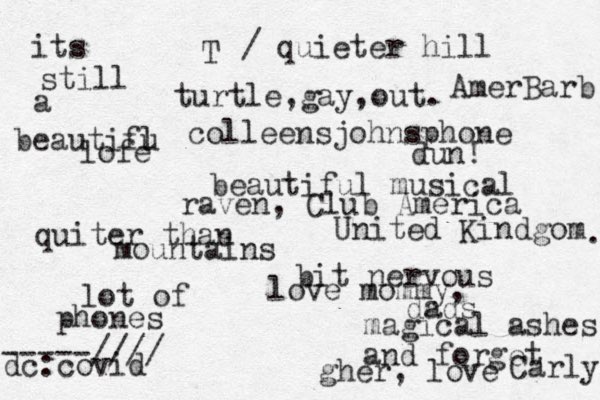 its T / quieter hill
still
a turtle,gay,out. AmerBarb
beautiflu colleensjohnsphone
lofe dun!
beautiful musical
raven, Club America
quiter than United Kindgom.
mountains
bit nervous
lot of love mommy,
phones dads
magical ashes
_____//// and forget
dc:covid gher, love Carly